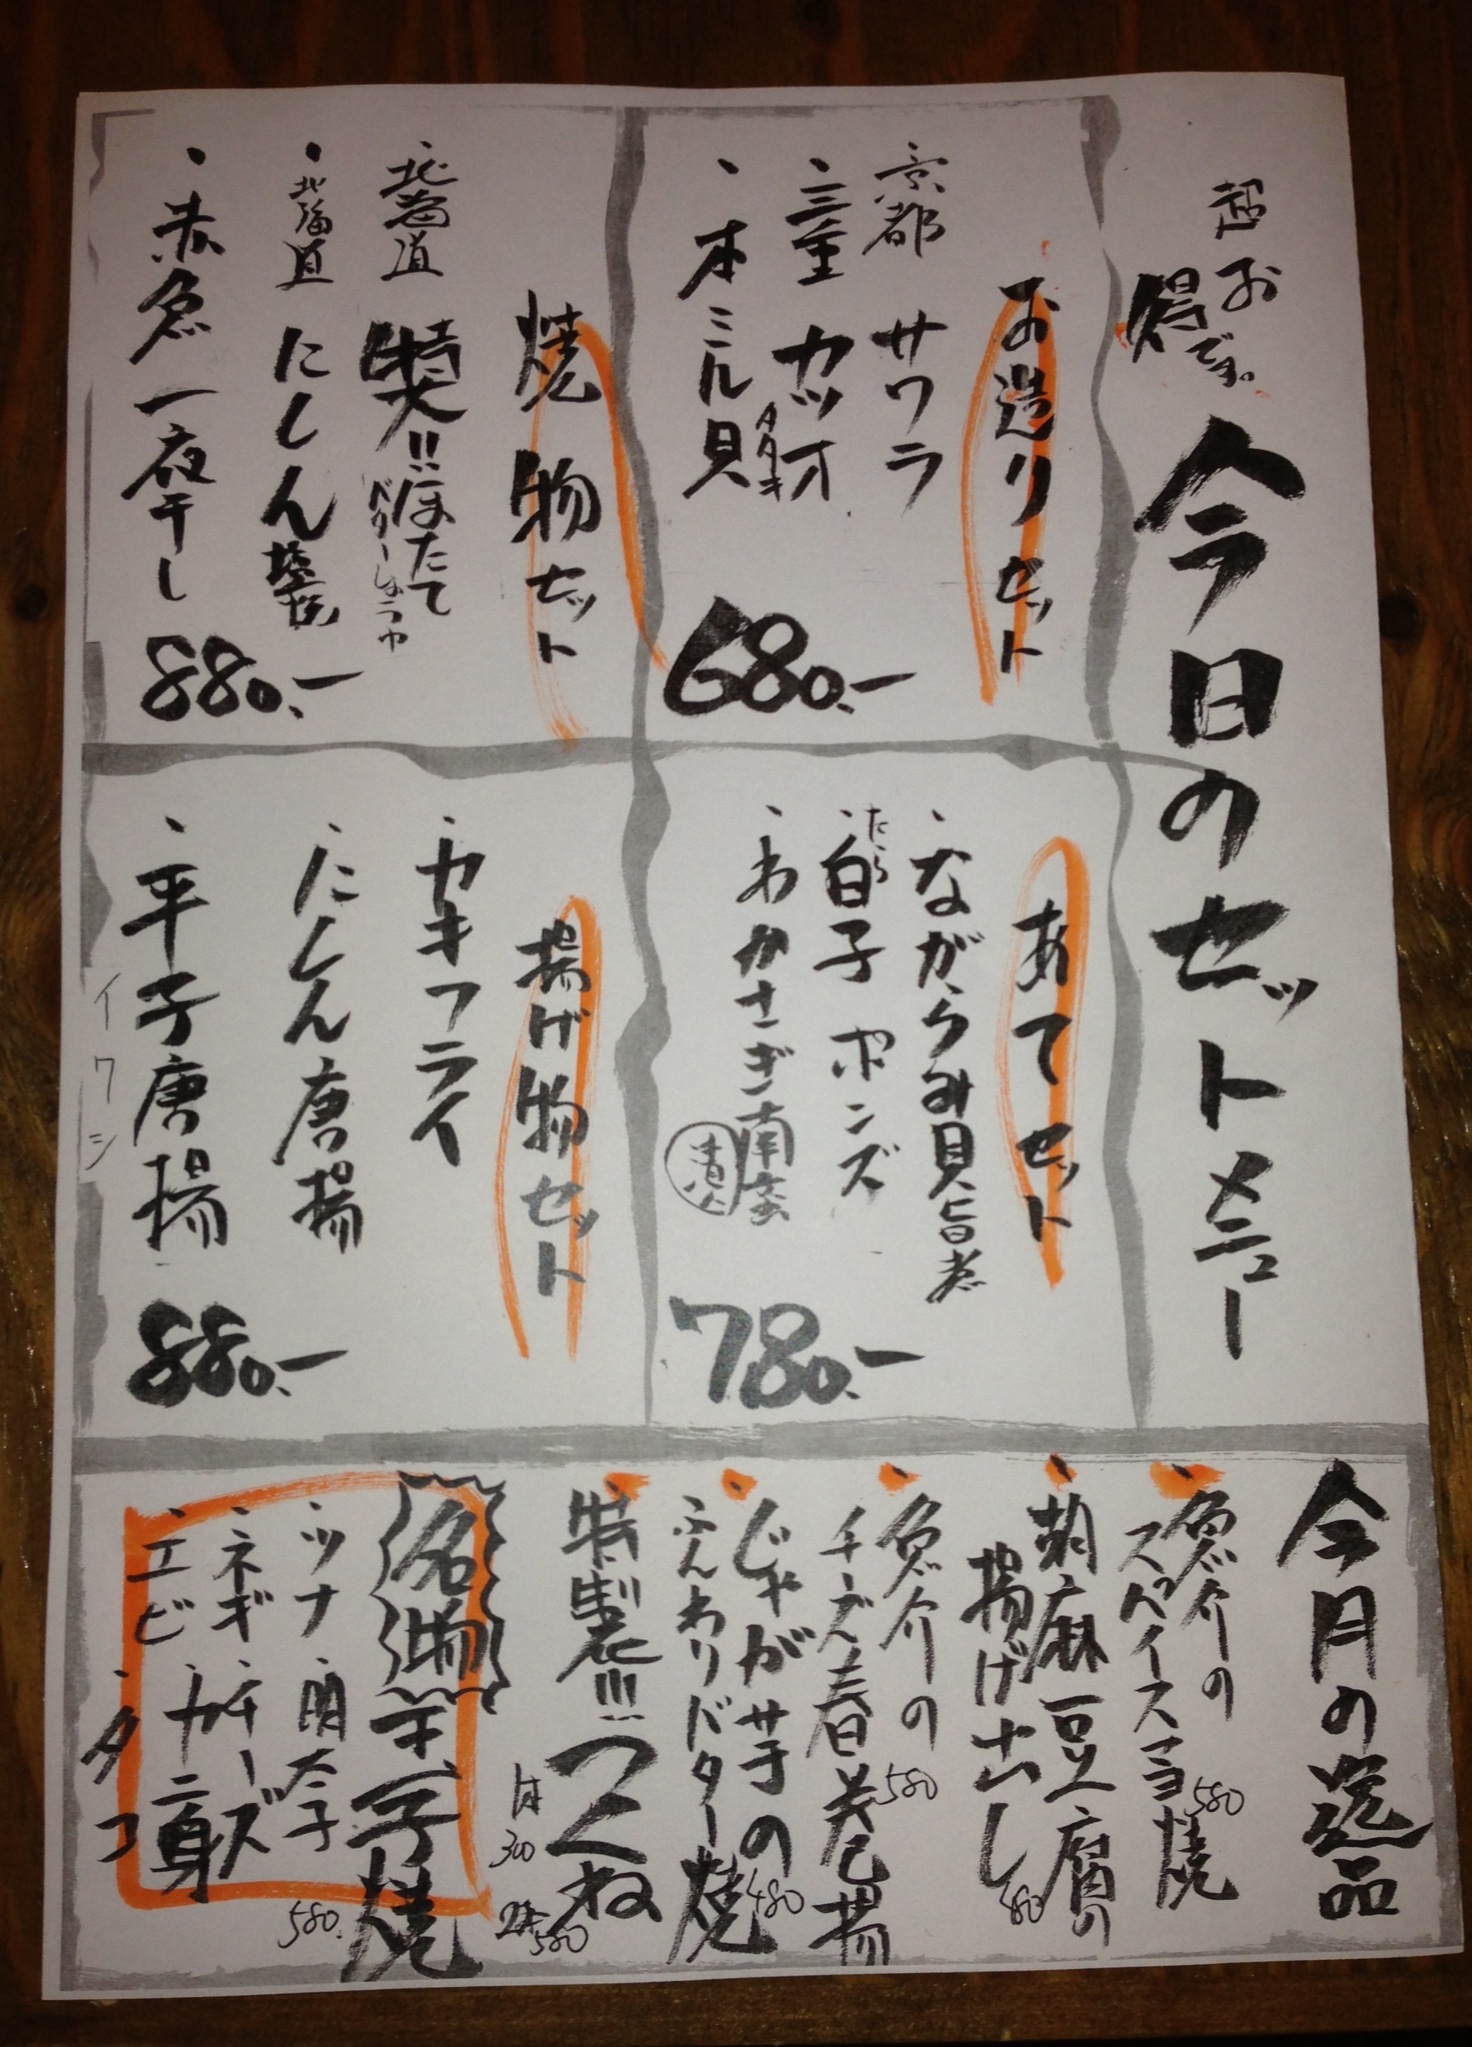 超お得です。
今日のセットメニュー
お造りセット
、京都 サワラ
、三重 カツオ タタキ
、本ミル貝
680.-
焼物セット
、北海道 特大!!ほたて
バターしょうゆ
、北海道 にしん 塩焼
、赤魚一夜干し
880.-
あてセット
、ながらみ貝旨煮
、たら白子 ポンズ
、わかさぎ南蛮漬け
780.-
揚げ物セット
、カキフライ
、にしん唐揚
、平子唐揚
イワシ
880.-
今月の逸品
、魚介の
スパイスマヨ焼
580
、胡麻豆腐の
揚げ出し
480
、魚介の
チーズ春巻き揚
580
、じゃがサキの
ふんわりバター焼
480
、特製!!!つくね
1本 300
2本 580
名物 玉子焼
580.
、ツナ
、明太子
、ネギ
、チーズ
、エビ
、カニ身
、タコ